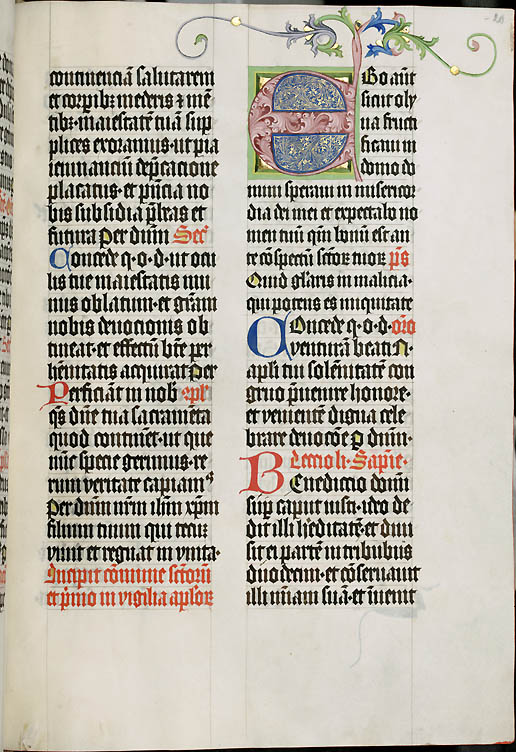 continenciā salutarem
et corpibꝫ mederis ⁊ mē
tibꝫ· maiestatē tuā sup
plices exoramus· ut pia
ieiunanciū dep̄catione
placatus· et p̄ñcia no
bis subsidia p̄beas et
futura Per dūm Sec̄
Concede q· o· d· ut ocu
lis tue maiestatis mu
nus oblatum· et grām
nobis deuocionis ob
tineat· et effectū btē per
hennitatis acquirat Per
Perficiāt in nob
qs dn̄e tua sacramēta
quod continēt· ut que
nūc specie gerimus· re
rum veritate capiam
Per dūm nrm ihm xpm
filium tuum qui tecū
viuit et regnat in vnita·
Incipit cōmune sctōrū
et p̄mo in vigilia aplōr
20
Ego aūt
sicut oly
ua fructi
ficaui in
domo do
mini speraui in misericor
dia dei mei et expectabo no
men tuū qm̄ bonū est an
te cōspectū sctōr tuor p̄s
Quid gl̄aris in malicia·
qui potens es iniquitate
Concede q· o· d· orō
venturā beati N
apl̄i tui solēnitatē con
gruo p̄uenire honore·
et venientē digna cele
brare deuocōe p dūm·
Leccio li· Sapiē·
Benedictio domī
sup caput iusti· ideo de
dit illi h̓editatē· et diui
sit ei partē in tribubus
duodecim· et cōseruauit
illi mīam suā· et inuenit